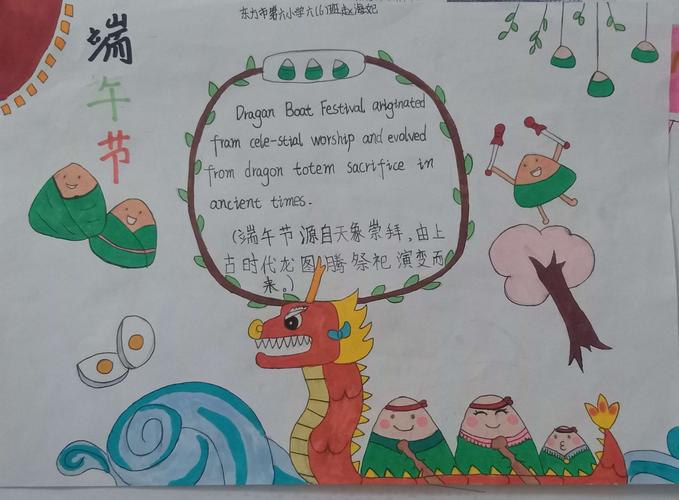 东方市第六小学六(6)班赵海妃
端午节
Dragan Boat Festival ariginated
fram cele-stial worship and evolved
from dragon totem sacrifice in
ancient times.
(端午节源自天象崇拜,由上
古时代龙图腾祭祀演变而
来。)